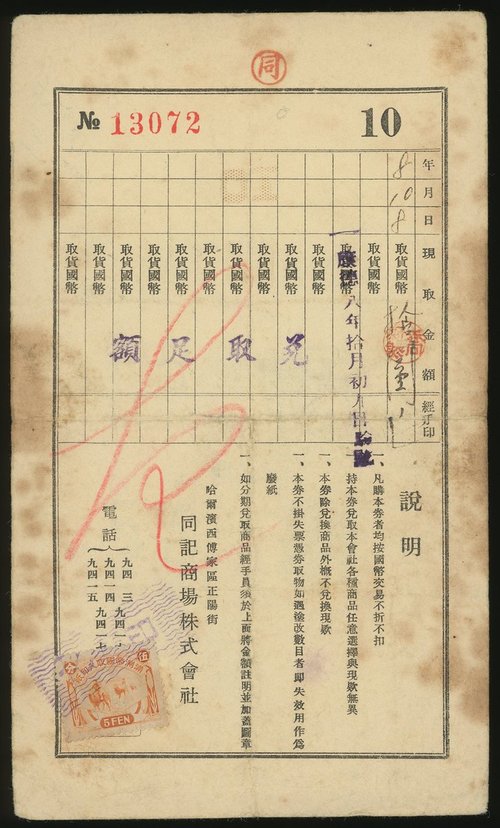 同
№ 13072
10
年 月 日 現取金額 經手印
8 10 8
取貨國幣
取貨國幣
取貨國幣
取貨國幣
取貨國幣
取貨國幣
取貨國幣
取貨國幣
取貨國幣
取貨國幣
取貨國幣
取貨國幣
康德八年拾月初八日
兌取足額
說明
一、凡購本券者均按國幣交易不折不扣
持本券兌取本會社各種商品任意選擇與現欵無異
一、本券除兌換商品外概不兌換現欵
一、本券不掛失票憑券取物如過塗改數目者即失效用作為
廢紙
一、如分期兌取商品經手員須於上面將金額註明並加蓋圖章
哈爾濱西傅家區正陽街
同記商場株式會社
電話
九四一三
九四一四
九四一五
九四一七
伍
5 FEN